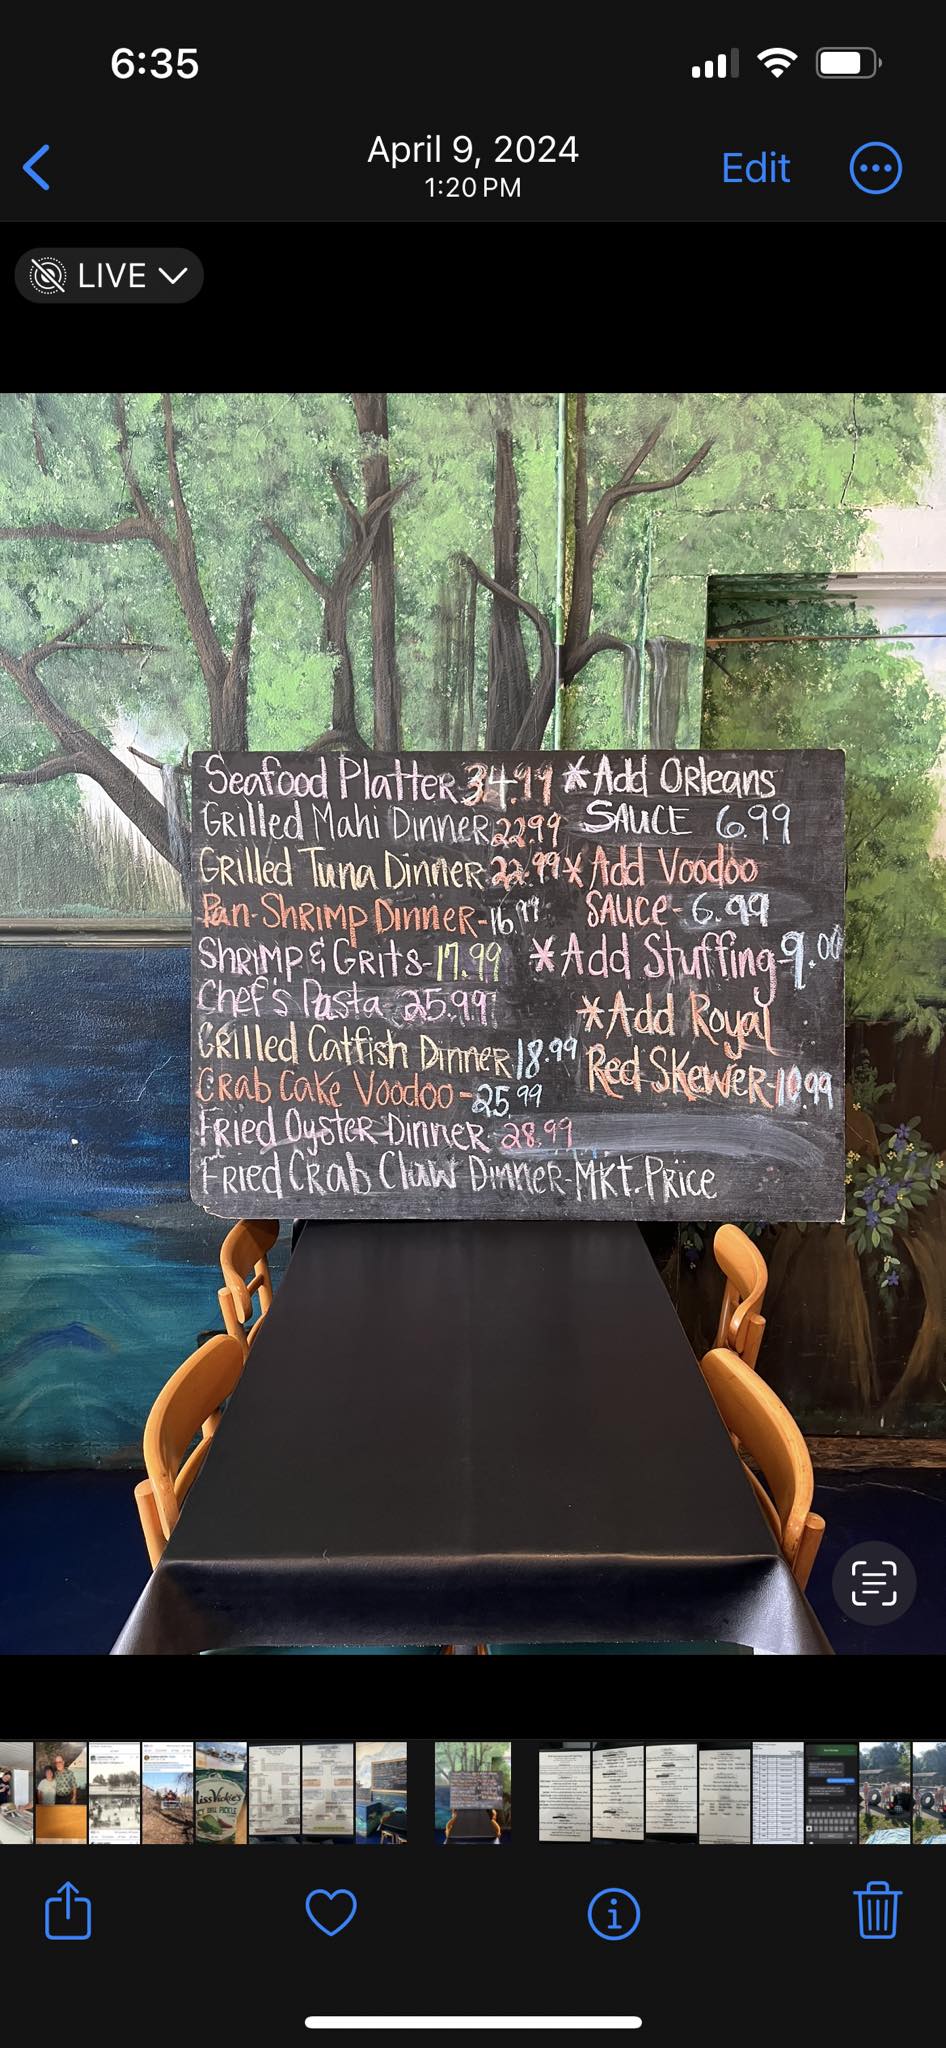 6:35
April 9, 2024
1:20 PM
Edit
LIVE
Seafood Platter 34.99
Grilled Mahi Dinner 22.99
Grilled Tuna Dinner-22.99
Pan-Shrimp Dinner-16.99
Shrimp & Grits-17.99
Chef's Pasta 25.99
Grilled Catfish Dinner 18.99
Crab Cake Voodoo-25.99
Fried Oyster Dinner-28.99
Fried Crab Claw Dinner-Mkt. Price
*Add Orleans
Sauce 6.99
*Add Voodoo
Sauce-6.99
*Add Stuffing-9.00
*Add Royal
Red Skewer-10.99